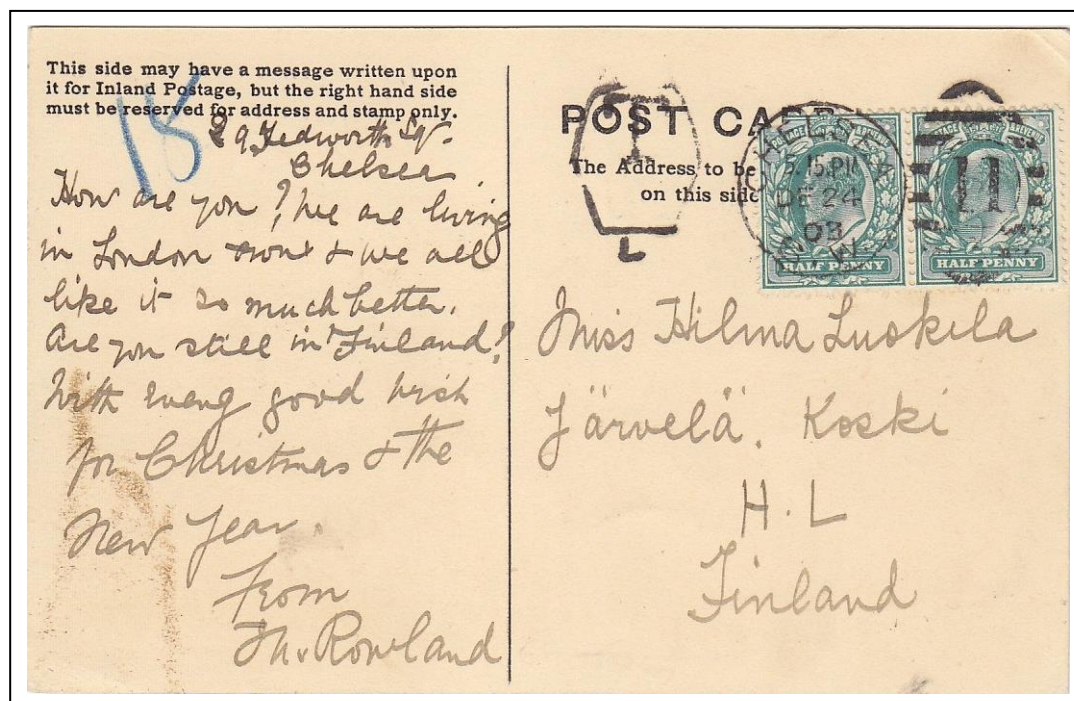 This side may have a message written upon
it for Inland Postage, but the right hand side
must be reserved for address and stamp only.
15
29 Tedworth Sq.
Chelsea
How are you? We are living
in London now & we all
like it so much better.
Are you still in Finland?
With every good wish
for Christmas & the
New Year.
From
M. Rowland
POST CARD
The Address to be
on this side
T
L
CHELSEA
5.15.PM
DE 24
03
S.W.
11
POSTAGE REVENUE
HALF PENNY
POSTAGE REVENUE
HALF PENNY
Miss Hilma Luskila
Järvelä. Koski
H.L
Finland